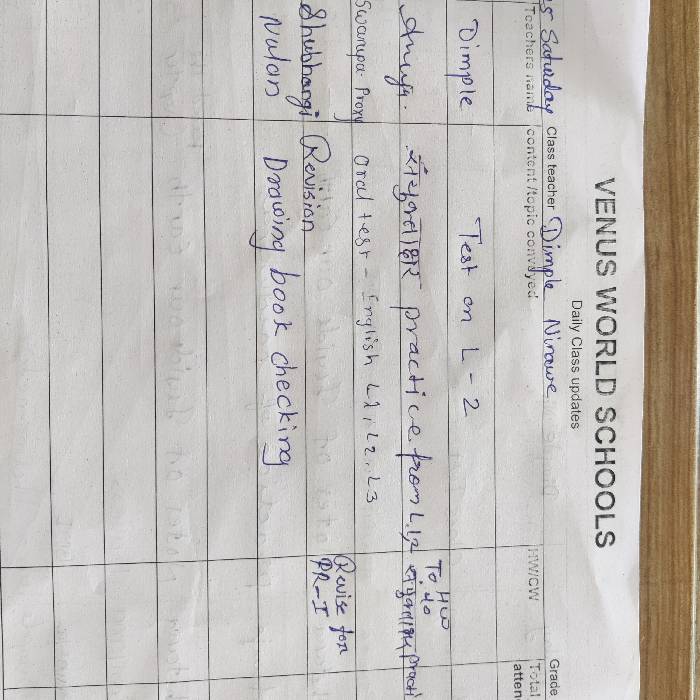 VENUS WORLD SCHOOLS
Daily Class updates
Saturday Class teacher Dimple Nirawe Grade
Teachers name content /topic convayed HW/CW Total
atten
Dimple Test on L-2
To HW do
Anuja. practice from L.1,2
Swarupa Proxy Oral test - English L1, L2, L3
Shubhangi Revision Revise for PR-I
Nutan Drawing book checking